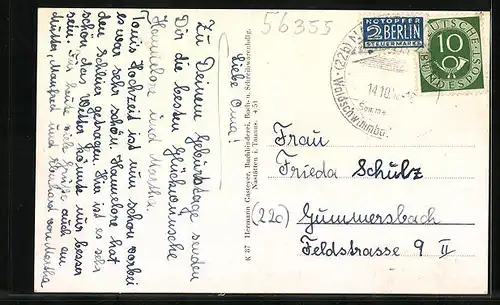 56355
Liebe Oma!
Zu Deinem Geburtstage senden
Dir die besten Glückwünsche
Hannelore und Martha.
Hochzeit ist nun schon vorbei
es war sehr schön. Hannelore hat
den schleier getragen. Hier ist es sehr
schön, das Wetter könnte nur besser
sein. Für heute viele Grüße auch an
Manfred und von Martha
K 87 Hermann Casteyer, Buchbinderei, Buch- u. Schreibwarenhdlg.
Nastätten i. Taunus. 4 51
NOTOPFER
2 BERLIN
STEUERMARKE
DEUTSCHE
10
BUNDESPOST
(22b)
14.10.
Frau
Frieda Schulz
(22c) Gummersbach
Feldstrasse 9 II